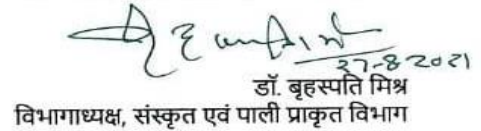 27-8-2021
डॉ. बृहस्पति मिश्र
विभागाध्यक्ष, संस्कृत एवं पाली प्राकृत विभाग